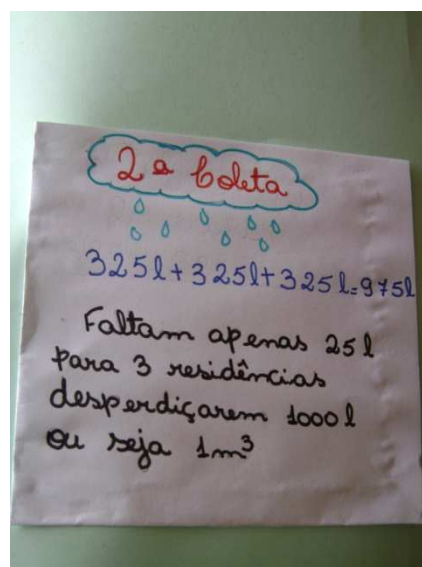 2ª Coleta
325l+325l+325l=975l
Faltam apenas 25l
para 3 residências
desperdiçarem 1000l
ou seja 1m³